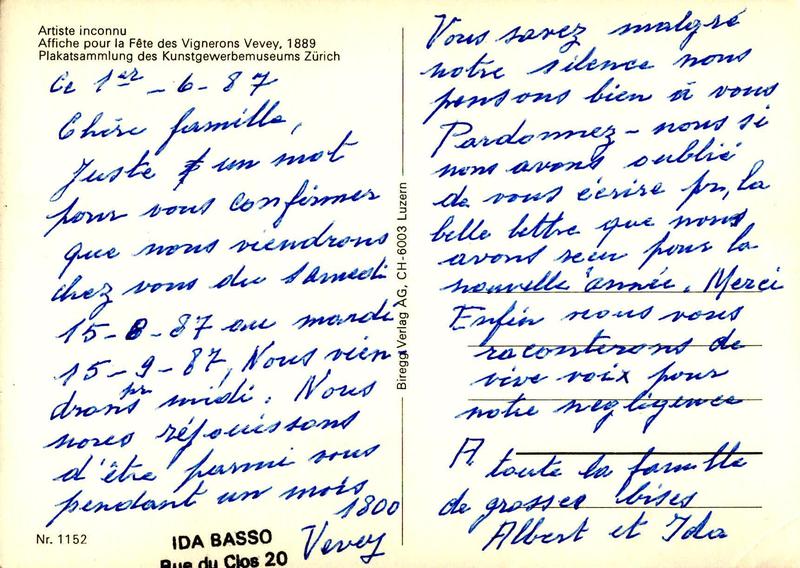 Artiste inconnu
Affiche pour la Fête des Vignerons Vevey, 1889
Plakatsammlung des Kunstgewerbemuseums Zürich
Ce 1er - 6 - 87
Chère famille,
Juste un mot
pour vous confirmer
que nous viendrons
chez vous du samedi
15-8-87 au mardi
15-9-87, Nous vien
drons pr midi. Nous
nous réjouissons
d'être parmi vous
pendant un mois
1800
Vevey
Nr. 1152
IDA BASSO
Rue du Clos 20
Biregg Verlag AG, CH-6003 Luzern
Vous savez malgré
notre silence nous
pensons bien à vous
Pardonnez-nous si
nous avons oublié
de vous écrire pr, la
belle lettre que nous
avons reçu pour la
nouvelle année. Merci
Enfin nous vous
raconterons de
vive voix pour
notre negligence
A
toute la famille
de grosses bises
Albert et Ida